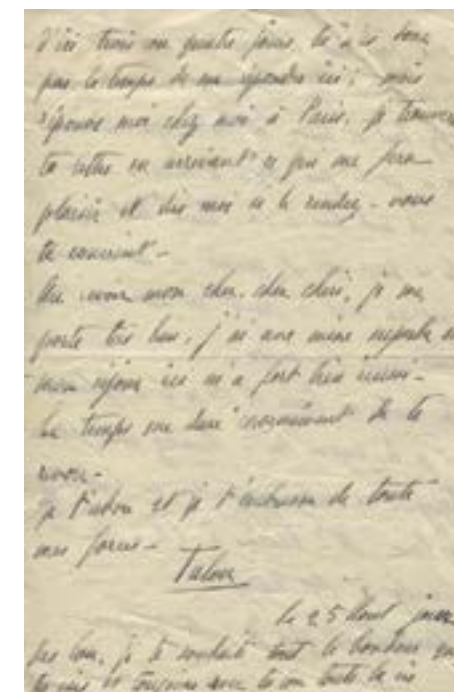 d'ici trois ou quatre jours, tu n'as donc
pas le temps de me répondre ici; mais
réponds moi chez moi à Paris, je trouverai
ta lettre en arrivant ce qui me fera
plaisir et dis moi si le rendez-vous
te convient -
Au revoir mon cher, cher chéri, je me
porte très bien, j'ai une mine superbe et
mon séjour ici m'a fort bien réussi -
Le temps me dure de te
voir -
je t'adore et je t'embrasse de toute
mes forces -
le 25 Août
je te souhaite tout le bonheur
toujours toute la vie